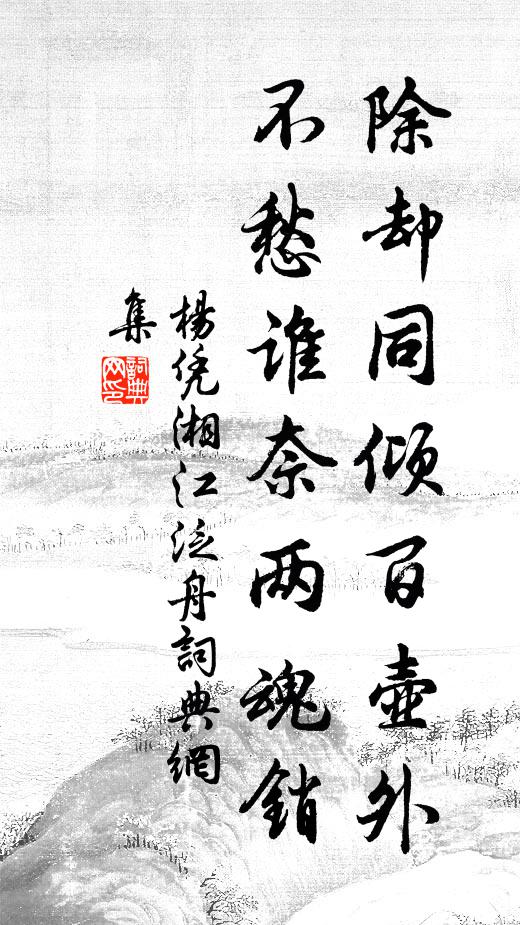 除却同倾百壶外
不愁谁奈两魂销
楊凭湘江泛舟詞典網
集
詞典网印